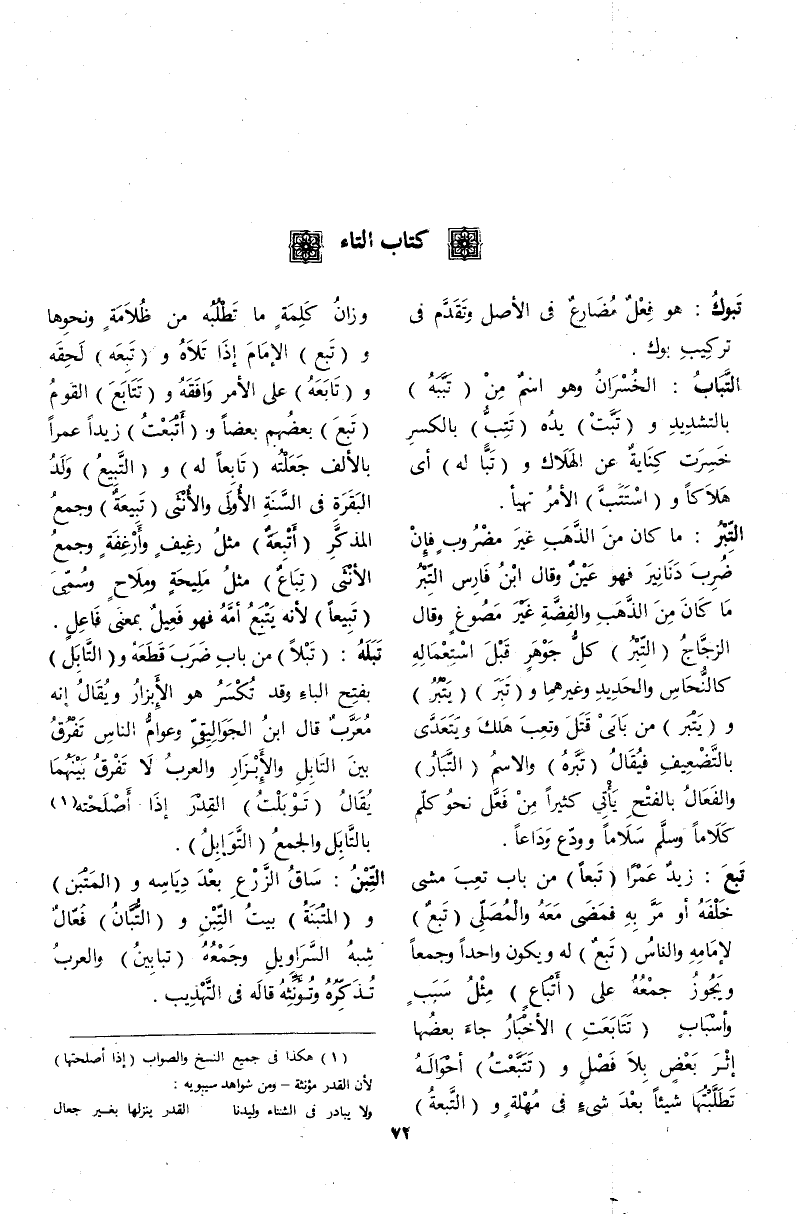 كتاب التاء
تَبوكُ : هو فِعْلٌ مُضَارِعٌ فى الأصل وتَقَدَّم فى
تركيبِ بوك .
التَّبَابُ : الخُسْرَانُ وهو اسمٌ مِنْ ( تَبَّبَهُ )
بالتشديدِ و ( تَبَّتْ ) يدُه ( تَتِبُّ ) بالكسرِ
خَسِرَت كِنَايةٌ عن الهَلَاكِ و ( تَبًّا له ) أى
هَلَاكاً و ( اسْتَتَبَّ ) الأمرُ تهيأ .
التِّبْرُ : ما كان منَ الذَّهَبِ غيرَ مضْروبٍ فإن
ضُرِبَ دَنَانِيرَ فهو عَيْنٌ وقال ابْنُ فَارِسٍ التِّبْرُ
مَا كَانَ مِنَ الذَّهَبِ والفِضَّةِ غَيْرَ مَصُوغٍ وقال
الزجَّاجُ ( التِّبْرُ ) كلُّ جَوْهَرٍ قَبْلَ اسْتِعْمَالِهِ
كالنُّحَاسِ والحَدِيدِ وغيرهِما و ( تَبَرَ ) ( يَتْبُرُ )
و ( يَتْبَر ) من بَابَىْ قَتَلَ وتعِبَ هَلكَ ويَتَعَدَّى
بالتَّضْعِيفِ فيُقَالُ ( تَبَّرَهُ ) والاسمُ ( التَّبَارُ )
والفَعَالُ بالفتْحِ يَأْتِي كثيراً مِنْ فَعَّل نحوُ كلّم
كَلَاماً وسلَّم سَلَاماً وودّع وَدَاعاً .
تَبِعَ : زيدٌ عَمْرًا ( تَبعاً ) من باب تعِبَ مشى
خَلْفَهُ أو مَرَّ بِهِ فمَضَى مَعَهُ والْمُصَلِّى ( تَبَعٌ )
لإمامِهِ والناسُ ( تَبَعٌ ) له ويكون واحداً وجمعاً
ويَجُوزُ جمْعُهُ على ( أَتْبَاعٍ ) مِثْلُ سَبَبٍ
وأسْبَابٍ ( تَتَابَعَتِ ) الأخْبَارُ جاءَ بعضُها
إثْرَ بَعْضٍ بِلاَ فَصْلٍ و ( تَتَبَّعْتُ ) أحْوَالَهُ
تَطَلَّبْتُهَا شيئاً بعْدَ شىءٍ فى مُهْلةٍ و ( التَّبِعةُ )
وزانُ كَلِمَةٍ ما تَطْلُبُه من ظُلَامَةٍ ونحوِها
و ( تَبع ) الإمَامَ إذَا تَلاَهُ و ( تَبِعَه ) لَحِقَه
و ( تَابَعَهُ ) على الأمر وَافَقَهُ و ( تَتَابَعَ ) القومُ
( تَبعَ ) بعضُهم بعضاً و ( أَتْبَعْتُ ) زيداً عمراً
بالألف جَعَلْتُه ( تَابِعاً له ) و ( التَّبِيعُ ) وَلَدُ
البَقَرَةِ فى السَّنَةِ الأُولَى والأُنْثَى ( تَبِيعَةٌ ) وجمعُ
المذكَّرِ ( أَتْبِعَةٌ ) مثلُ رغِيفٍ وأَرْغِفَةٍ وجمعُ
الأنْثَى ( تِبَاعٌ ) مثلُ مَلِيحَةٍ ومِلَاحٍ وسُمِّىَ
( تَبِيعاً ) لأنه يَتْبَعُ أمَّهُ فهو فَعِيلٌ بمعنَى فَاعِلٍ .
تَبَلَهُ : ( تَبْلاً ) من بابِ ضَرَبَ قَطَعَهُ و( التَّابَل )
بفتحِ الباءِ وقد تُكْسَرُ هو الأَبزارُ ويُقَالُ إنه
مُعَرَّبٌ قال ابنُ الجَوَالِيقِيّ وعوامُّ الناسِ تَفْرُقُ
بينَ التابَلِ والأَبْزَارِ والعربُ لَا تَفْرقُ بَيْنَهُمَا
يُقَالُ ( تَوْبَلْتُ ) القِدْرَ إذَا أَصْلَحْته(١)
بالتَّابَلِ والجمعُ ( التَّوَابِلُ ) .
التِّبْنُ : سَاقُ الزَّرْعِ بعْدَ دِيَاسِه و ( المَتْبَن )
و ( المَتْبَنَةُ ) بيتُ التِّبْنِ و ( التُّبَّانُ ) فُعَّالٌ
شِبهُ السَّرَاوِيلِ وجَمْعُهُ ( تَبابينُ ) والعربُ
تُذَكِّرُهُ وتُؤَنِّثُه قالَه فى التَّهْذِيب .
(١) هكذا فى جميع النسخ والصواب ( إذا أصلحتها )
لأن القدر مؤنثة – ومن شواهد سيبويه :
ولا يبادر فى الشتاء وليدنا القدر ينزلها بغير جعال
٧٢